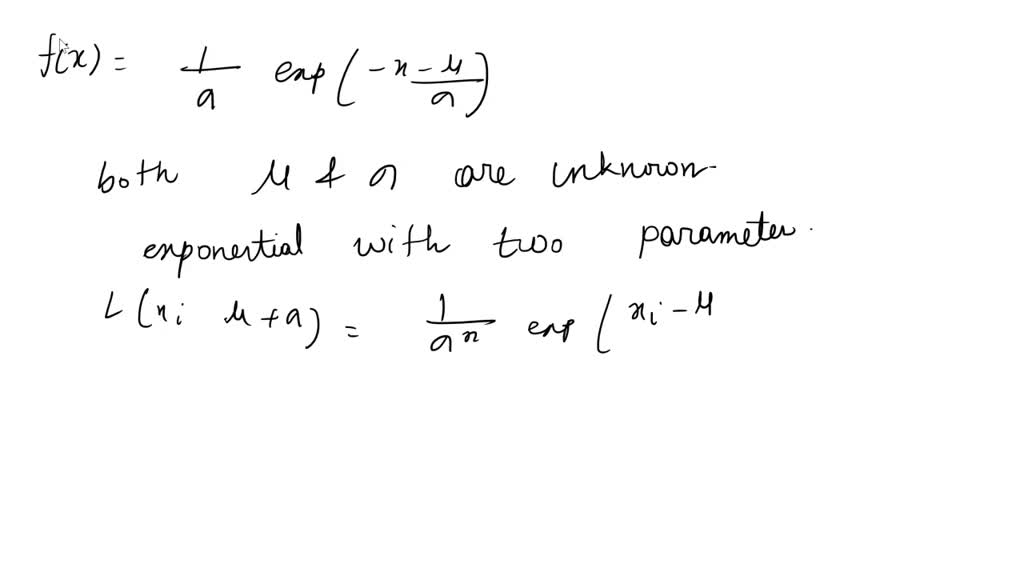 f(x) = 1/a exp(-x-μ/a)
both μ & a are unknown
exponential with two parameter.
L(xi μ+a) = 1/a^n exp(xi-μ